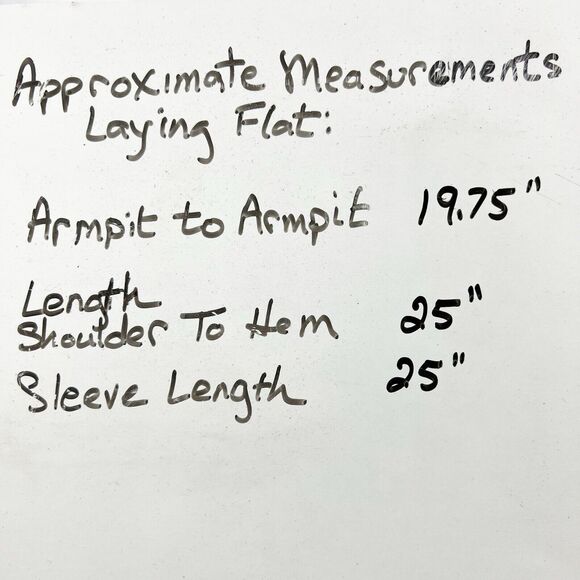 Approximate Measurements
Laying Flat:
Armpit to Armpit 19.75"
Length
Shoulder To Hem 25"
Sleeve Length 25"